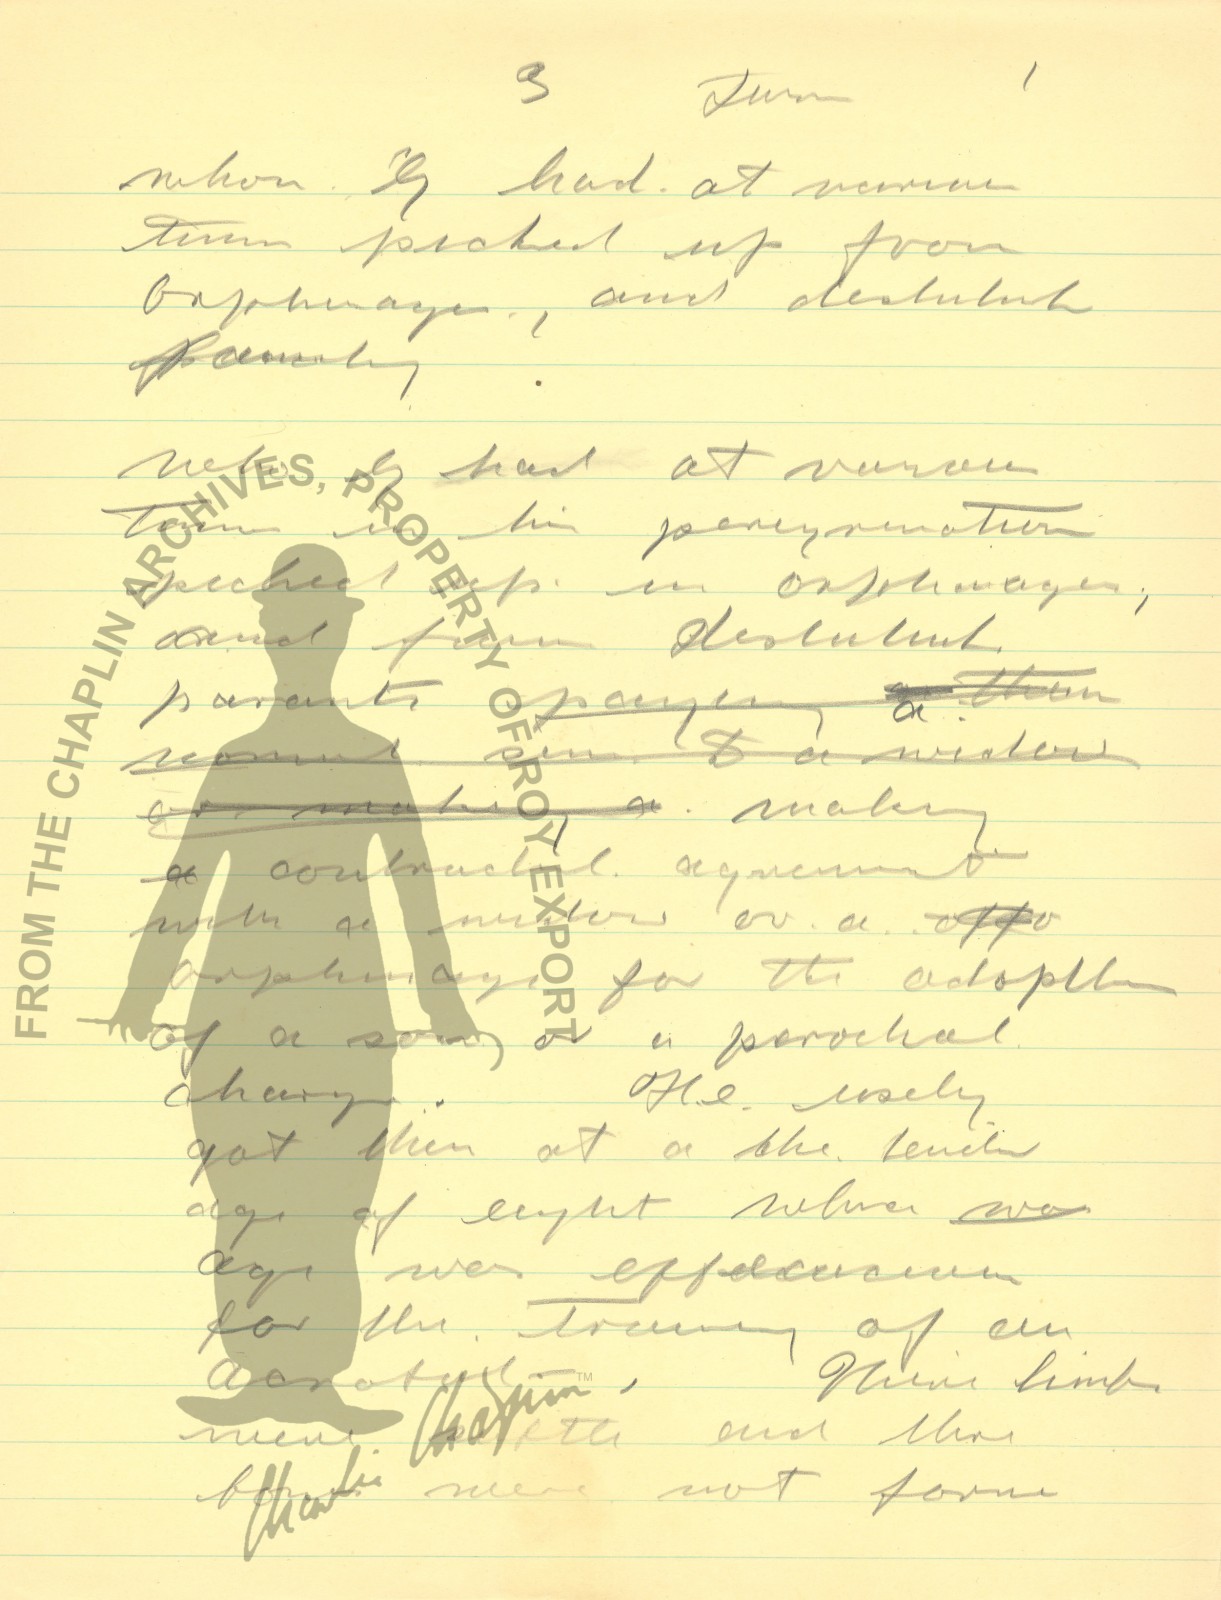 3 Turn 1
whom. He had. at various
times picked up from
orphanages, and destitute
family.
had at various
times in his peregrination
picked up. in orphanages,
and from destitute
parents paying a them
sum to a widow
or making a. making
a contractual agreement
with a widow or a.
orphanage for the adoption
of a son, or a parochial
charge. He. usely
got them at a the. tender
age of eight when wa
age was efficacious
for the. training of an
acrobat, Their limbs
were supple and there
bones were not form
FROM THE CHAPLIN ARCHIVES, PROPERTY OF ROY EXPORT
Charlie Chaplin™